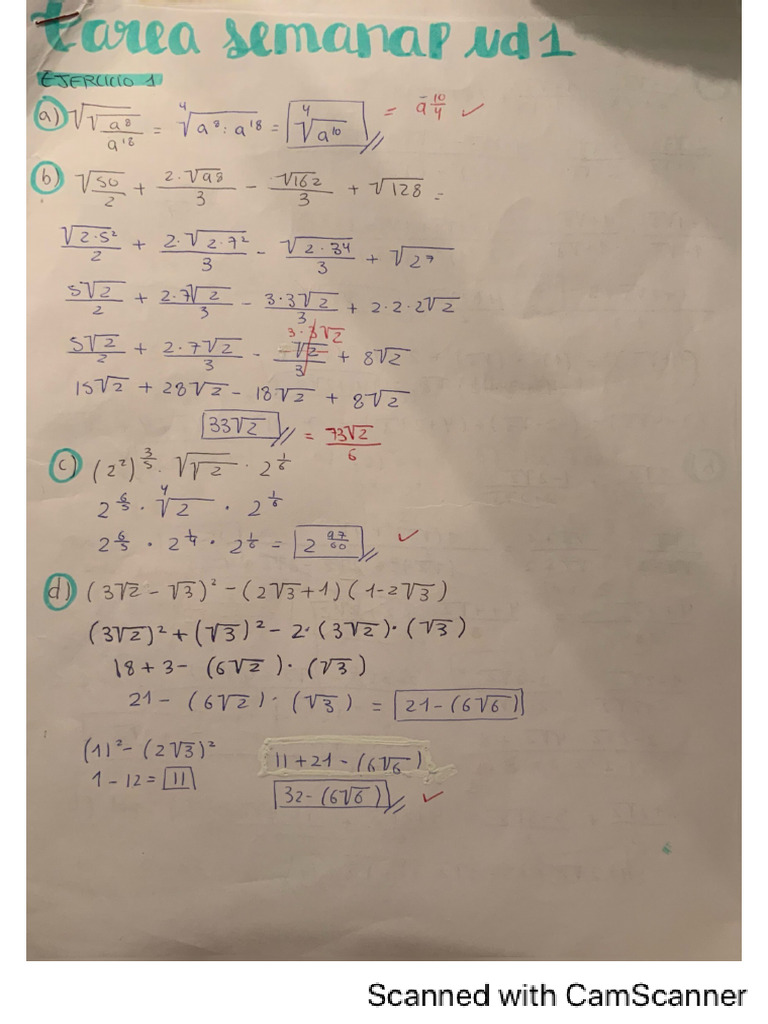 tarea semanal ud 1
EJERCICIO 1
a) √√(a⁸/a¹⁸) = ⁴√(a⁸ : a¹⁸) = ⁴√a¹⁰ = a^(-10/4) ✓
b) √50/2 + 2·√98/3 - √162/3 + √128 =
√(2·5²)/2 + 2·√(2·7²)/3 - √(2·3⁴)/3 + √2⁷
5√2/2 + 2·7√2/3 - 3·3√2/3 + 2·2·2√2
3·3√2
5√2/2 + 2·7√2/3 - √2/3 + 8√2
15√2 + 28√2 - 18√2 + 8√2
33√2 = 73√2/6
c) (2²)^(3/5) · √√2 · 2^(1/6)
2^(6/5) · ⁴√2 · 2^(1/6)
2^(6/5) · 2^(1/4) · 2^(1/6) = 2^(97/60) ✓
d) (3√2 - √3)² - (2√3+1)(1-2√3)
(3√2)² + (√3)² - 2·(3√2)·(√3)
18 + 3 - (6√2)·(√3)
21 - (6√2)·(√3) = 21-(6√6)
(1)² - (2√3)²
1 - 12 = 11
11 + 21 - (6√6)
32-(6√6) ✓
Scanned with CamScanner